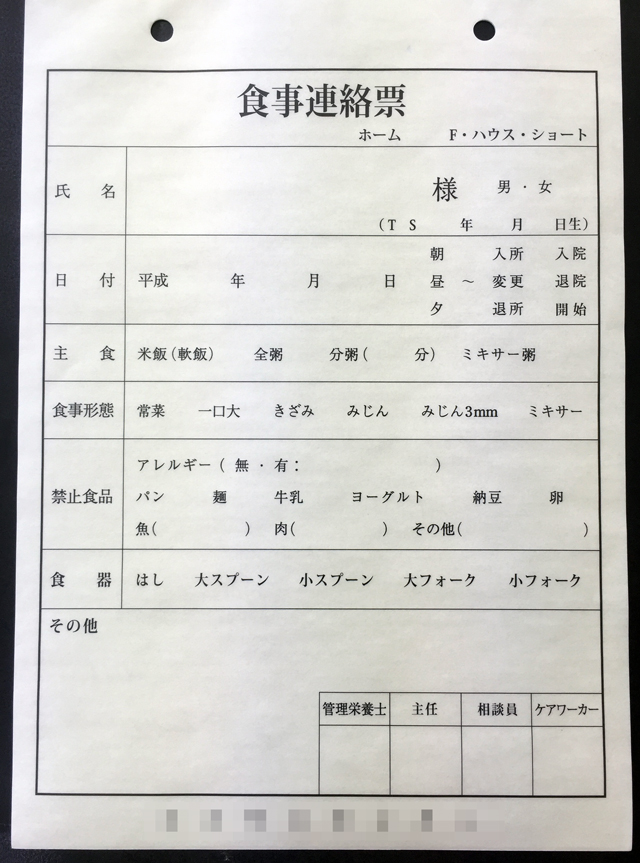 食事連絡票
ホーム　F・ハウス・ショート
氏　名　様　男・女
（T　S　年　月　日生）
朝　入所　入院
日　付　平成　年　月　日　昼　～　変更　退院
夕　退所　開始
主　食　米飯（軟飯）　全粥　分粥（　分）　ミキサー粥
食事形態　常菜　一口大　きざみ　みじん　みじん3mm　ミキサー
アレルギー（無・有：　）
禁止食品　パン　麺　牛乳　ヨーグルト　納豆　卵
魚（　）　肉（　）　その他（　）
食　器　はし　大スプーン　小スプーン　大フォーク　小フォーク
その他
管理栄養士　主任　相談員　ケアワーカー